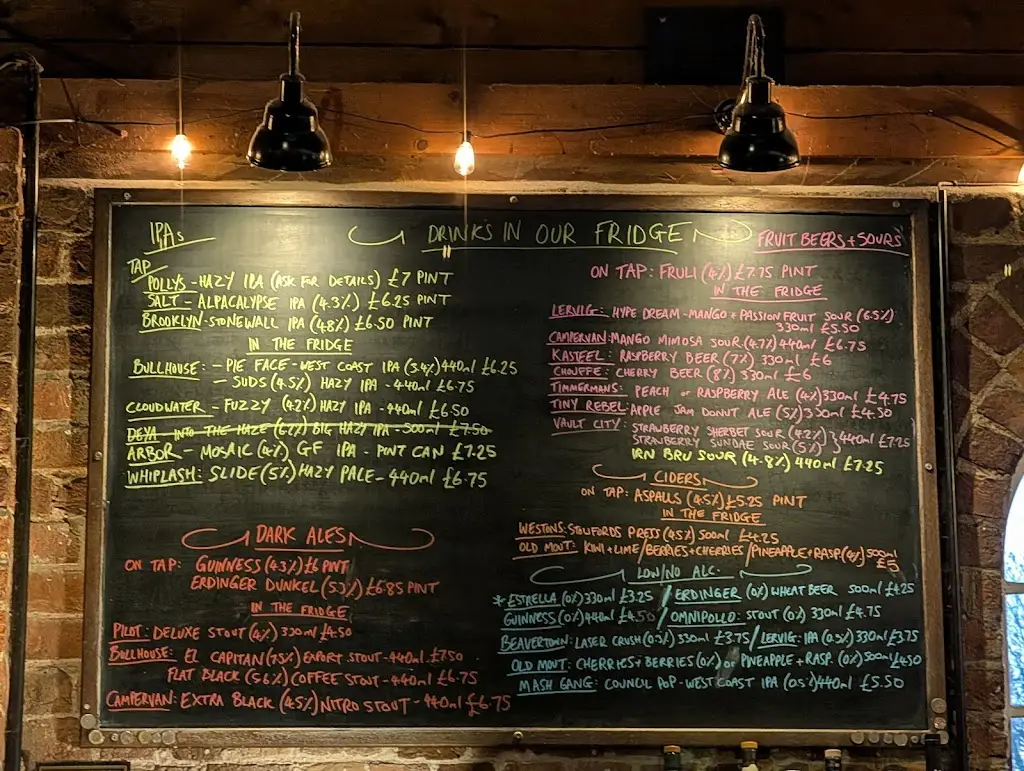 DRINKS IN OUR FRIDGE
IPAs
TAP
POLLYS - HAZY IPA (ASK FOR DETAILS) £7 PINT
SALT - ALPACALYPSE IPA (4.3%) £6.25 PINT
BROOKLYN - STONEWALL IPA (4.8%) £6.50 PINT
IN THE FRIDGE
BULLHOUSE: - PIE FACE - WEST COAST IPA (3.4%) 440ml £6.25
- SUDS (4.5%) HAZY IPA - 440ml £6.75
CLOUDWATER - FUZZY (4.2%) HAZY IPA - 440ml £6.50
DEYA INTO THE HAZE (6.2%) BIG HAZY IPA - 500ml £7.50
ARBOR - MOSAIC (4%) GF IPA - PINT CAN £7.25
WHIPLASH: SLIDE (5%) HAZY PALE - 440ml £6.75
DARK ALES
ON TAP: GUINNESS (4.3%) £6 PINT
ERDINGER DUNKEL (5.3%) £6.85 PINT
IN THE FRIDGE
PILOT: DELUXE STOUT (4%) 330ml £4.50
BULLHOUSE: EL CAPITAN (7.5%) EXPORT STOUT - 440ml £7.50
FLAT BLACK (5.6%) COFFEE STOUT - 440ml £6.75
CAMPERVAN: EXTRA BLACK (4.5%) NITRO STOUT - 440ml £6.75
FRUIT BEERS + SOURS
ON TAP: FRULI (4%) £7.75 PINT
IN THE FRIDGE
LERVIG: HYPE DREAM - MANGO + PASSION FRUIT SOUR (6.5%)
330ml £5.50
CAMPERVAN: MANGO MIMOSA SOUR (4.7%) 440ml £6.75
KASTEEL: RASPBERRY BEER (7%) 330ml £6
CHOUFFE: CHERRY BEER (8%) 330ml £6
TIMMERMANS: PEACH or RASPBERRY ALE (4%) 330ml £4.75
TINY REBEL: APPLE JAM DONUT ALE (5%) 330ml £4.50
VAULT CITY: STRAWBERRY SHERBET SOUR (4.2%)
STRAWBERRY SUNDAE SOUR (5%) } 440ml £7.25
IRN BRU SOUR (4.8%) 440ml £7.25
CIDERS
ON TAP: ASPALLS (4.5%) £5.25 PINT
IN THE FRIDGE
WESTONS: STOWFORDS PRESS (4.5%) 500ml £4.25
OLD MOUT: KIWI + LIME / BERRIES + CHERRIES / PINEAPPLE + RASP (4%) 500ml
£5
LOW/NO ALC.
* ESTRELLA (0%) 330ml £3.25 / ERDINGER (0%) WHEAT BEER 500ml £4.25
GUINNESS (0%) 440ml £4.50 / OMNIPOLLO: STOUT (0%) 330ml £4.75
BEAVERTOWN: LASER CRUSH (0.3%) 330ml £3.75 / LERVIG: IPA (0.5%) 330ml £3.75
OLD MOUT: CHERRIES + BERRIES (0%) or PINEAPPLE + RASP. (0%) 500ml £4.50
MASH GANG: COUNCIL POP - WEST COAST IPA (0.5%) 440ml £5.50